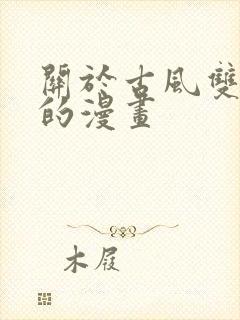 關於古風雙
的漫畫
木屐